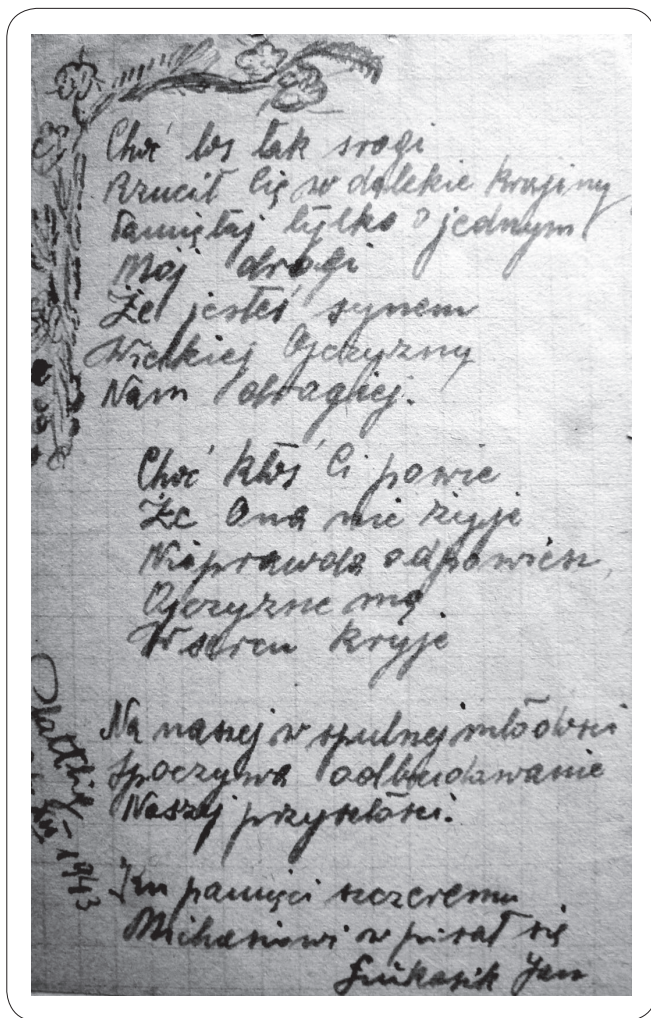 Choć los tak srogi
Rzucił Cię w dalekie krainy
Pamiętaj tylko o jednym
Mój drogi
Że jesteś synem
Wielkiej Ojczyzny
Nam drogiej.
Choć ktoś Ci powie
Że Ona nie żyje
Nieprawda odpowiesz,
Ojczyznę mą
W sercu kryje
Na naszej w spulnej młodości
Spoczywa odbudowanie
Naszej przyszłości.
Ku pamięci szczeremu
Michasiowi w pisał się
Łukasik Jan
XII 1943